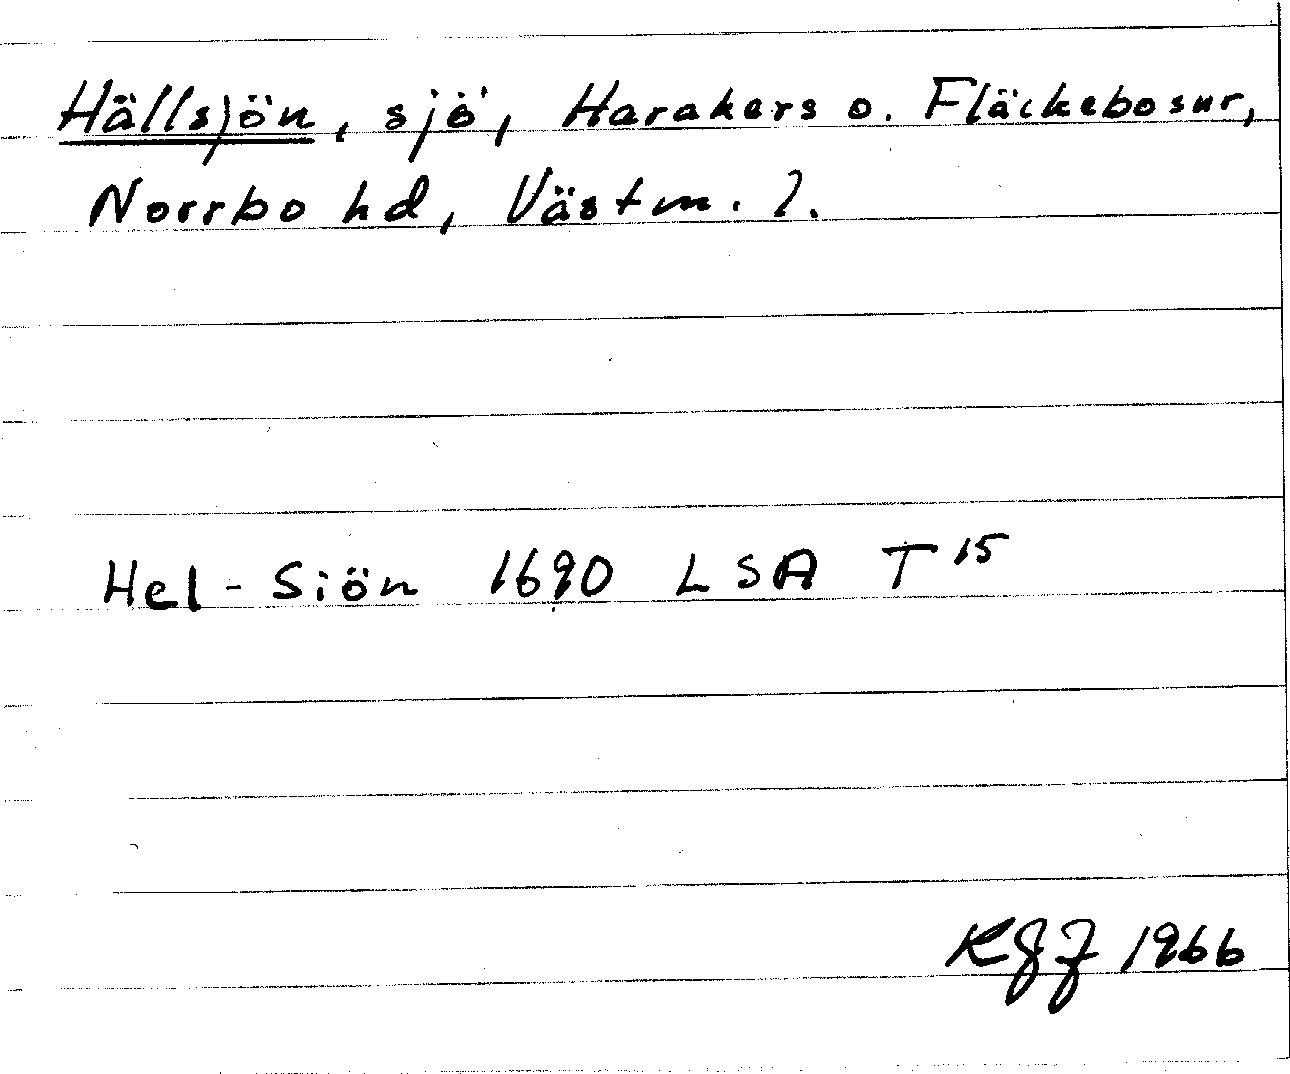 Hällsjön, sjö, Harakers o. Fläckebosnr,
Norrbo hd, Västm. l.
Hel-Siön 1690 LSA T 15
1966